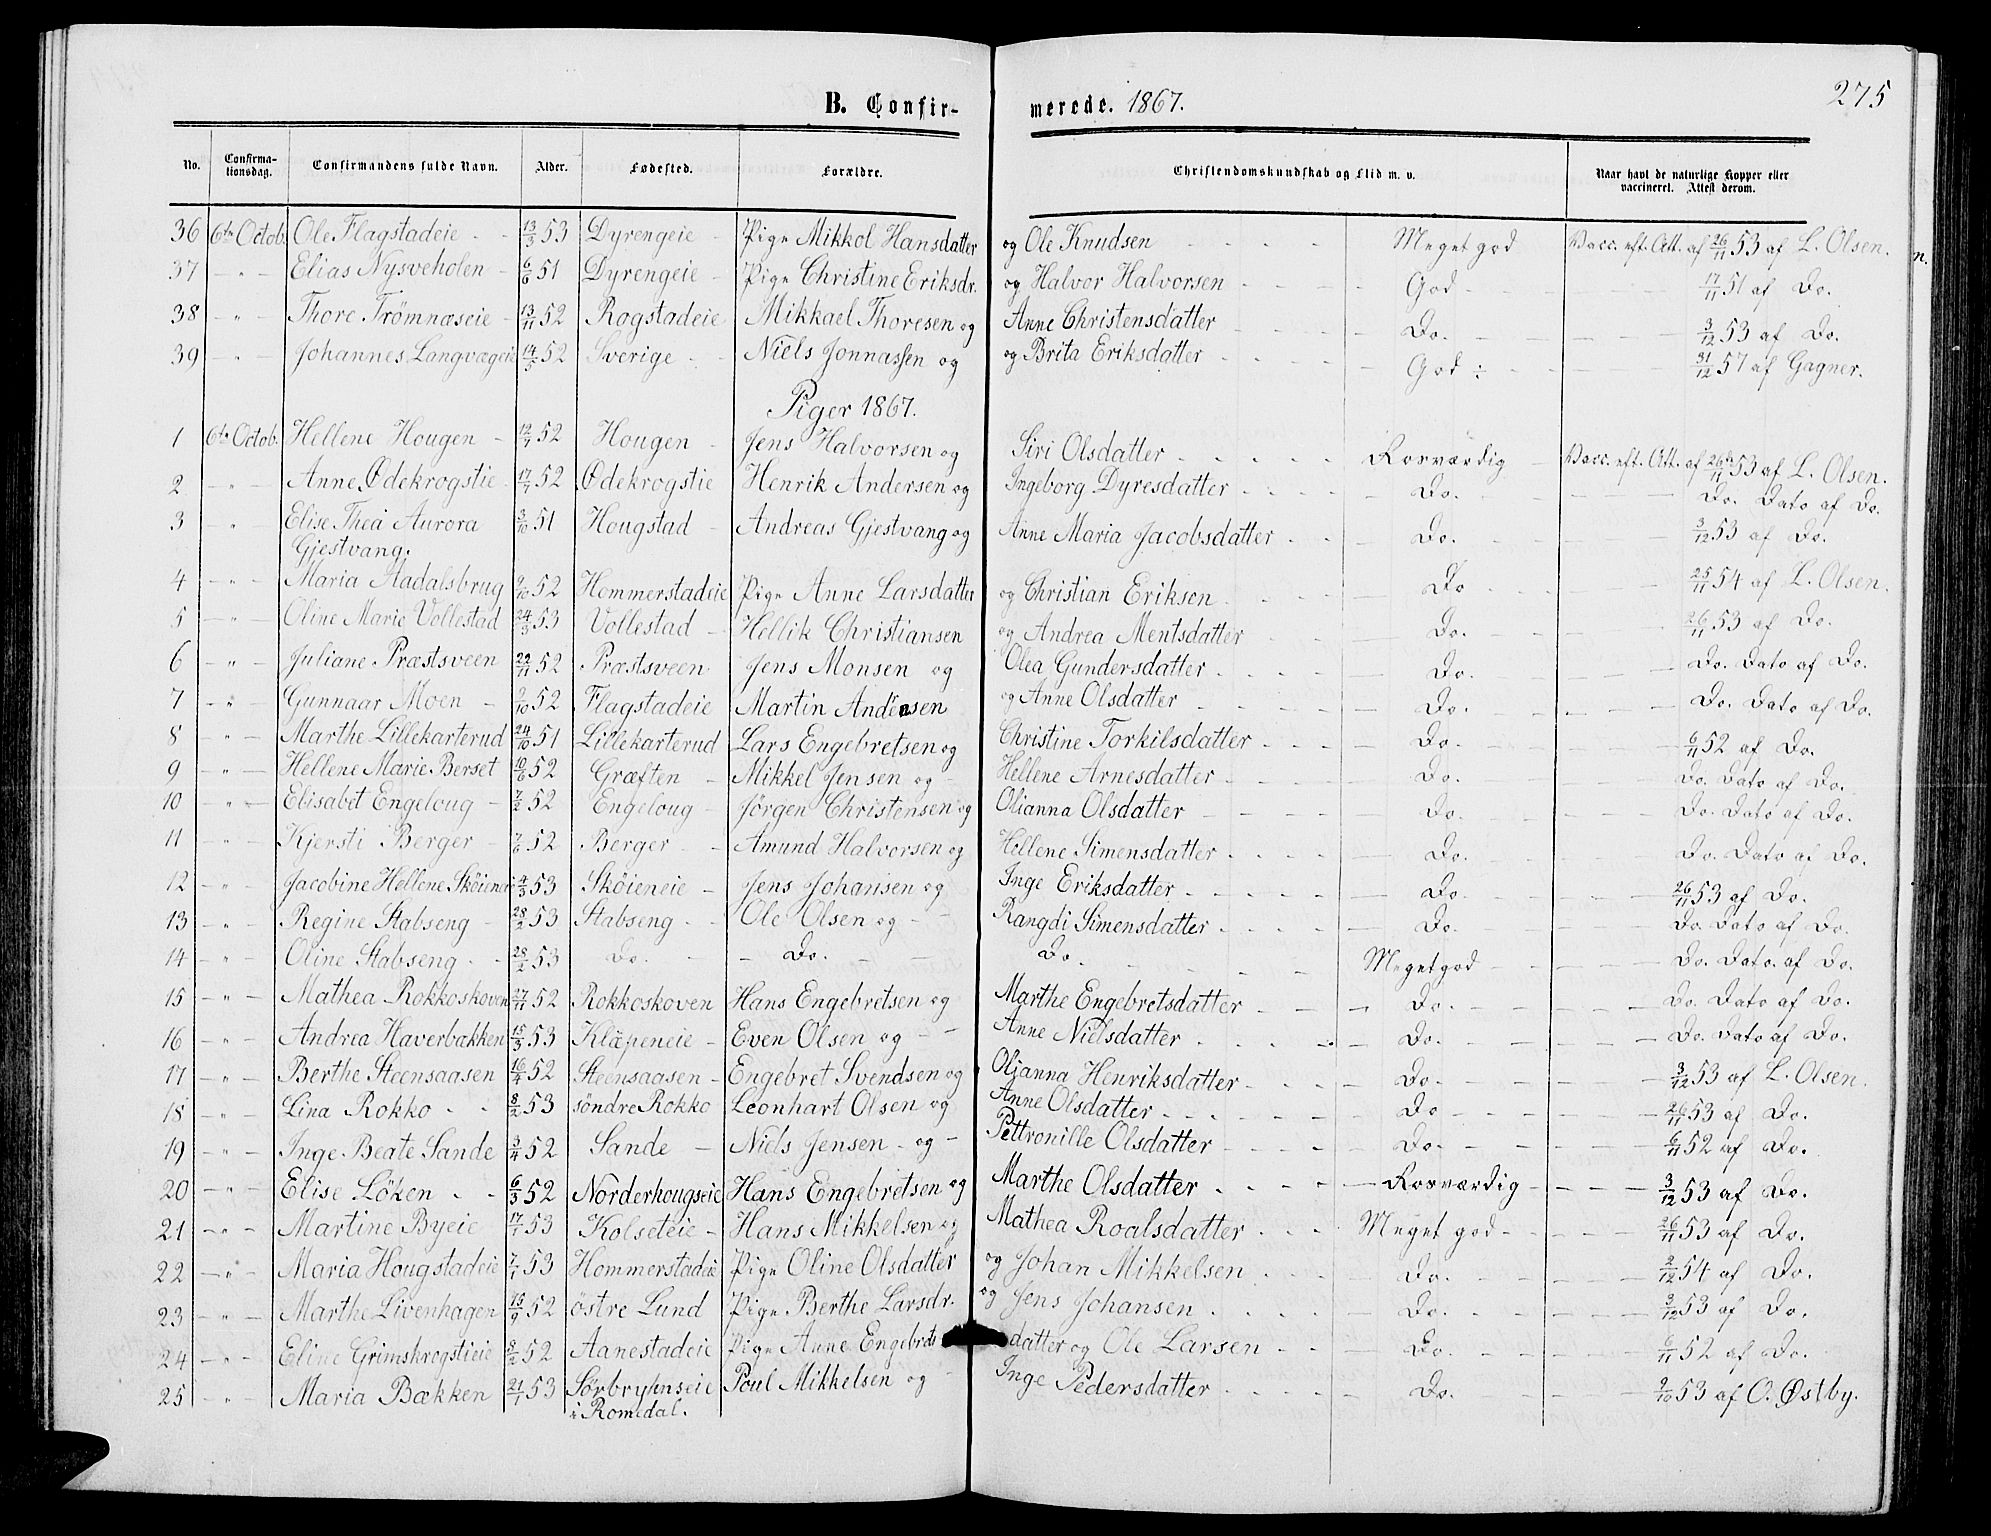 275
B. Confirmerede. 1867.
No. Confirmationsdag. Confirmandens fulde Navn. Alder. Fødested. Forældre. Christendomskundskab og Flid m. v. Naar havt de naturlige Kopper eller vaccineret. Attest derom.
36 6te Octob. Ole Flagstadeie - - 13/3 53 Dyrengeie - Pige Mikkol Hansdatter og Ole Knudsen - - - - Meget god Vacc. eft. Att. af 26/11 53 af L. Olsen.
37 - " - Elias Nysveholen - 6/6 51 Dyrengeie - Pige Christine Eriksdr. og Halvor Halvorsen - - - - God - - - 17/11 51 af Do.
38 - " - Thore Trömnæseie - 13/11 52 Rogstadeie Mikkael Thoresen og Anne Christensdatter - - - - Do. - - - 3/12 53 af Do.
39 - " - Johannes Langvægeie 14/5 52 Sverige - - Niels Jonnassen og og Brita Eriksdatter - - - - God ÷ - - - 31/12 57 af Gagner.
Piger 1867.
1 6te Octob. Hellene Hougen - 12/7 52 Hougen - Jens Halvorsen og Siri Olsdatter - - - - Rosværdig - Vacc. eft. Att. af 26de/11 53 af L. Olsen.
2 - " - Anne Ødekrogstie 17/7 52 Ødekrogstie Henrik Andersen og Ingeborg Dyresdatter - - - - Do. - - - Do. Dato af Do.
3 - " - Elise Thea Aurora 3/10 51 Hougstad - Andreas Gjestvang og Anne Maria Jacobsdatter - - - Do. - - - 3/12 53 af Do.
Gjestvang.
4 - " - Maria Aadalsbrug 9/10 52 Hommerstadeie Pige Anne Larsdatter og Christian Eriksen - - - - Do - - - 25/11 54 af L. Olsen.
5 - " - Oline Marie Vollestad 24/3 53 Vollestad - Hellik Christiansen og Andrea Mentsdatter - - - Do. - - - 26/11 53 af Do.
6 - " - Juliane Præstsveen 22/11 52 Præstsveen Jens Monsen og Olea Gundersdatter - - - - Do. - - - Do. Dato af Do.
7 - " - Gunnaar Moen - 2/10 52 Flagstadeie Martin Andersen og Anne Olsdatter - - - - Do. - - - Do. Dato af Do.
8 - " - Marthe Lillekarterud 24/10 51 Lillekarterud Lars Engebretsen og Christine Torkilsdatter - - - - Do. - - - 6/11 52 af Do.
9 - " - Hellene Marie Berset 10/6 52 Græften - Mikkel Jensen og - Hellene Arnesdatter - - - - Do. - - - Do. Dato af Do.
10 - " - Elisabet Engeloug - 7/2 52 Engeloug - Jørgen Christensen og Olianna Olsdatter - - - - Do. - - - Do. Dato af Do.
11 - " - Kjersti Berger - 7/6 52 Berger - - Amund Halvorsen og Hellene Simensdatter - - - - Do. - - - Do. Dato af Do.
12 - " - Jacobine Hellene Sköieneie 4/3 53 Sköieneie - Jens Johansen og Inge Eriksdatter - - - - Do. - - - 26/11 53 af Do.
13 - " - Regine Stabseng - 28/2 53 Stabseng - - Ole Olsen og - - Rangdi Simensdatter - - - - Do. - - - Do. Dato af Do.
14 - " - Oline Stabseng - - 28/2 53 Do. - - Do. - - Do. - - - - Meget god - - - Do. Dato. af Do.
15 - " - Mathea Rokkoskoven 27/11 52 Rokkoskoven Hans Engebretsen og Marthe Engebretsdatter - - - Do. - - - Do. Dato af Do.
16 - " - Andrea Haverbakken 15/3 53 Klæpeneie - Even Olsen og - Anne Nielsdatter - - - - Do. - - - Do. Dato af Do.
17 - " - Berthe Steensaasen 16/4 52 Steensaasen - Engebret Svendsen og Olianna Henriksdatter - - - - Do - - - 3/12 53 af L. Olsen.
18 - " - Lina Rokko - - 8/2 53 söndre Rokko Leonhart Olsen og Anne Olsdatter - - - - Do - - - 26/11 53 af Do.
19 - " - Inge Beate Sande 3/4 52 Sande - Niels Jensen - og - Pettronille Olsdatter - - - - Do. - - - 6/11 52 af Do.
20 - " - Elise Löken - - 6/3 52 Norderhougseie Hans Engebretsen og Marthe Olsdatter - - - - Rosværdig - - - 3/12 53 af Do.
21 - " - Martine Byeie 17/7 53 Kolseteie - Hans Mikkelsen og Mathea Roalsdatter - - - Meget god - - - 26/11 53 af Do.
22 - " - Maria Hougstadeie 7/1 53 Hommerstadeie Pige Oline Olsdatter og Johan Mikkelsen - - - Do. - - - 2/12 54 af Do.
23 - " - Marthe Livenhagen 16/9 52 østre Lund Pige Berthe Larsdr. og Jens Johansen - - - - Do. - - - 3/12 53 af Do.
24 - " - Eline Grimskrogstieie 8/2 52 Aanestadeie Pige Anne Engebretsdatter og Ole Larsen - - - Do. - - - 6/11 52 af Do.
25 - " - Maria Bækken 21/1 53 Sørbryhnseie Poul Mikkelsen og - Inge Pedersdatter - - - - Do. - - - 9/10 53 af O. Østby.
i Romedal.